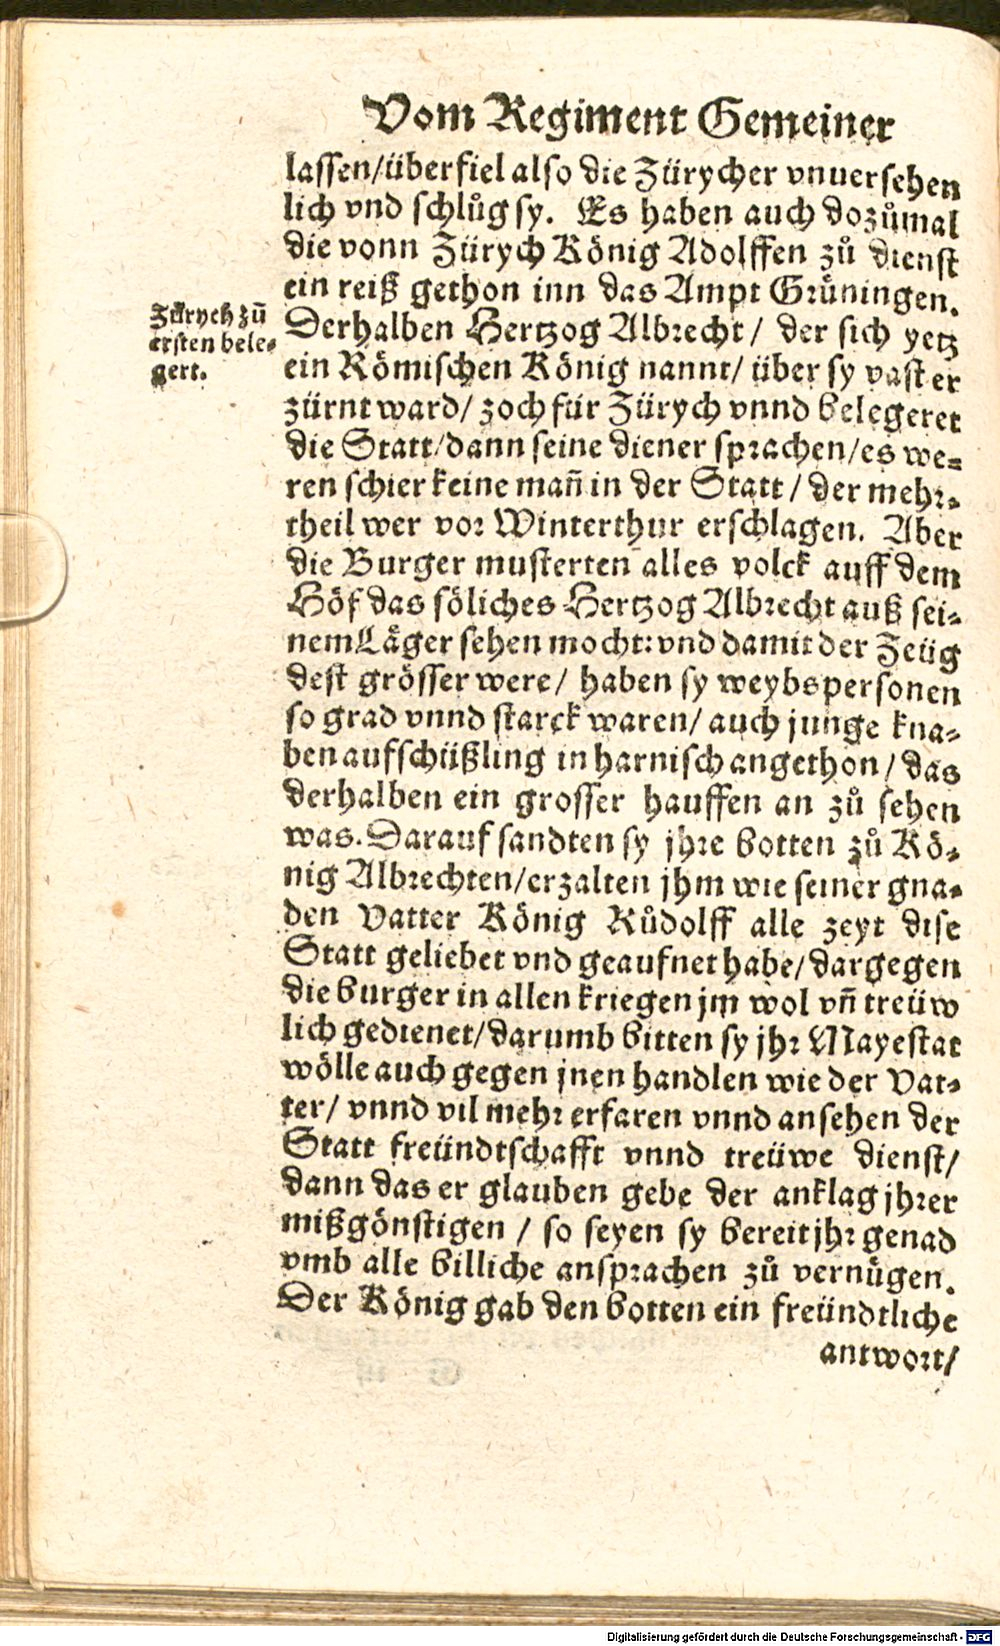 Vom Regiment Gemeiner
lassen/überfiel also die Zürycher vnuersehen
lich vnd schlůg sy. Es haben auch dozůmal
die vonn Zürych König Adolffen zů dienst
ein reiß gethon inn das Ampt Grüningen.
Zürych zů
ersten bele-
gert.
Derhalben Hertzog Albrecht/ der sich yetz
ein Römischen König nannt/ über sy vast er
zürnt ward/ zoch für Zürych vnnd belegeret
die Statt/dann seine diener sprachen/es we-
ren schier keine mañ in der Statt/ der mehr-
theil wer vor Winterthur erschlagen. Aber
die Burger musterten alles volck auff dem
Höf das söliches Hertzog Albrecht auß sei-
nem Läger sehen mocht: vnd damit der Zeüg
dest grösser were/ haben sy weybspersonen
so grad vnnd starck waren/ auch junge kna-
ben aufschüßling in harnisch angethon/ das
derhalben ein grosser hauffen an zů sehen
was. Darauf sandten sy jhre botten zů Kö-
nig Albrechten/erzalten jhm wie seiner gna-
den Vatter König Růdolff alle zeyt dise
Statt geliebet vnd geaufnet habe/ dargegen
die burger in allen kriegen jm wol vñ treüw
lich gedienet/darumb bitten sy jhr Mayestat
wölle auch gegen jnen handlen wie der Vat-
ter/ vnnd vil mehr erfaren vnnd ansehen der
Statt freündtschafft vnnd treüwe dienst/
dann das er glauben gebe der anklag jhrer
mißgönstigen / so seyen sy bereit jhr genad
vmb alle billiche ansprachen zů vernügen.
Der König gab den botten ein freündtliche
antwort/
Digitalisierung gefördert durch die Deutsche Forschungsgemeinschaft - DFG